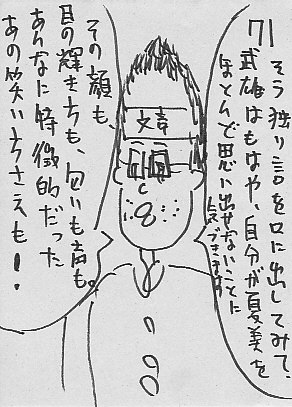 71 そう独り言を口に出してみて、
武雄はもはや、自分が夏美を
ほとんで思い出せないことに
気づきます
文青
その顔も、
目の輝きちも、匂いも声も。
あんなに特徴的だった
あの笑いちさえも!